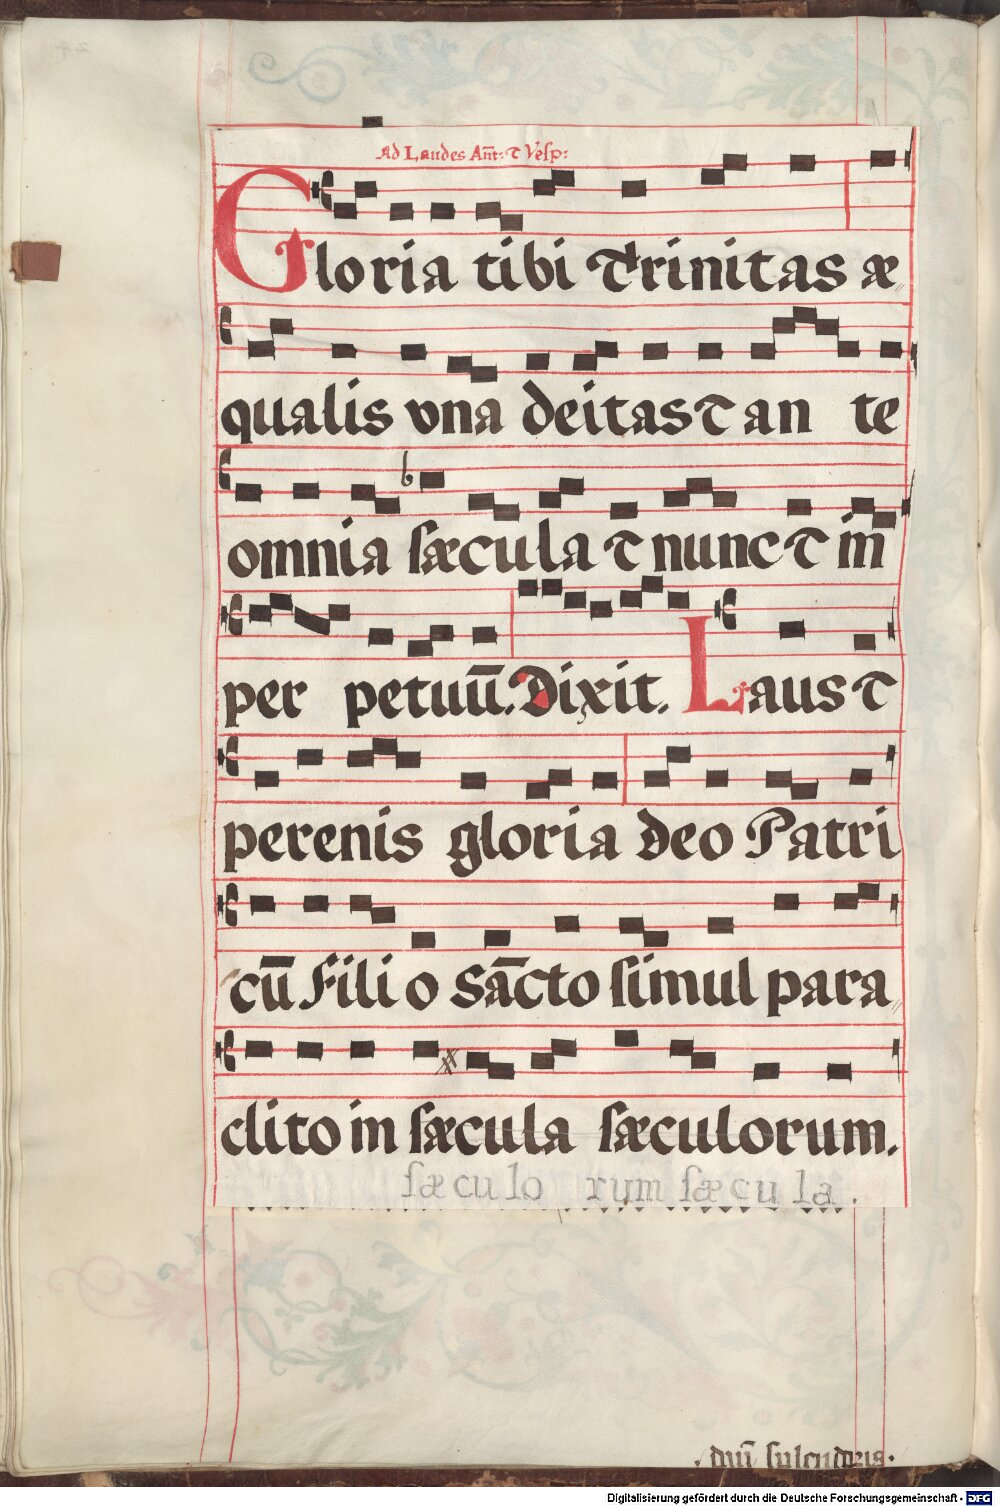 Ad Laudes Añt: ⁊ Vesp:
Gloria tibi Trinitas æ
qualis vna deitas ⁊ an te
omnia sæcula ⁊ nunc ⁊ in
per petuū. Dixit. Laus ⁊
perenis gloria deo Patri
cū Filio Sācto simul para
clito in sæcula sæculorum.
sæculo rum sæcula.
Digitalisierung gefördert durch die Deutsche Forschungsgemeinschaft - DFG